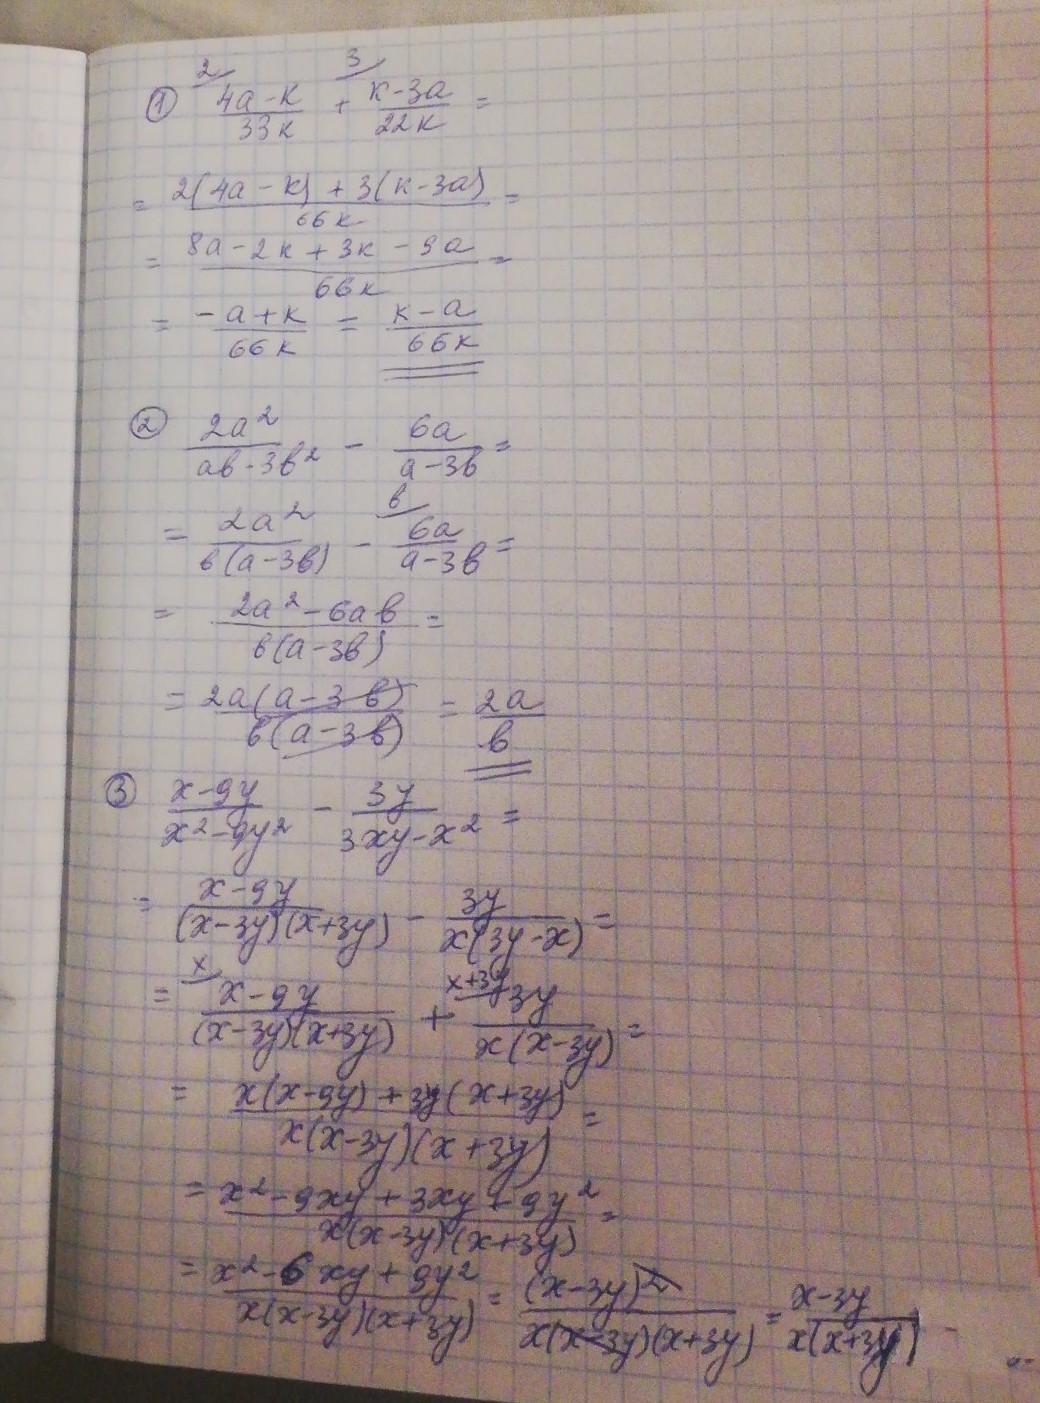 ① ²⟋(4a-к)/(33к) + ³⟋(к-3a)/(22к) =
= (2(4a-к)+3(к-3a))/(66к) =
= (8a-2к+3к-9a)/(66к) =
= (-a+к)/(66к) = (к-a)/(66к)
② (2a²)/(aв-3в²) - (6a)/(a-3в) =
= (2a²)/(в(a-3в)) - ᵇ⟋(6a)/(a-3в) =
= (2a²-6aв)/(в(a-3в)) =
= (2a(a-3в))/(в(a-3в)) = (2a)/(в)
③ (x-9y)/(x²-9y²) - (3y)/(3xy-x²) =
= (x-9y)/((x-3y)(x+3y)) - (3y)/(x(3y-x)) =
= ˣ⟋(x-9y)/((x-3y)(x+3y)) + ˣ⁺³ʸ⟋(3y)/(x(x-3y)) =
= (x(x-9y)+3y(x+3y))/(x(x-3y)(x+3y)) =
= (x²-9xy+3xy+9y²)/(x(x-3y)(x+3y)) =
= (x²-6xy+9y²)/(x(x-3y)(x+3y)) = ((x-3y)²)/(x(x-3y)(x+3y)) = (x-3y)/(x(x+3y))